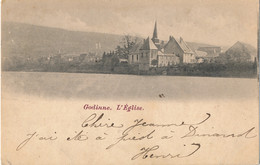 Godinne. L'Église.
Chère Jeanne
j'ai été à pied à Dinant
Henri